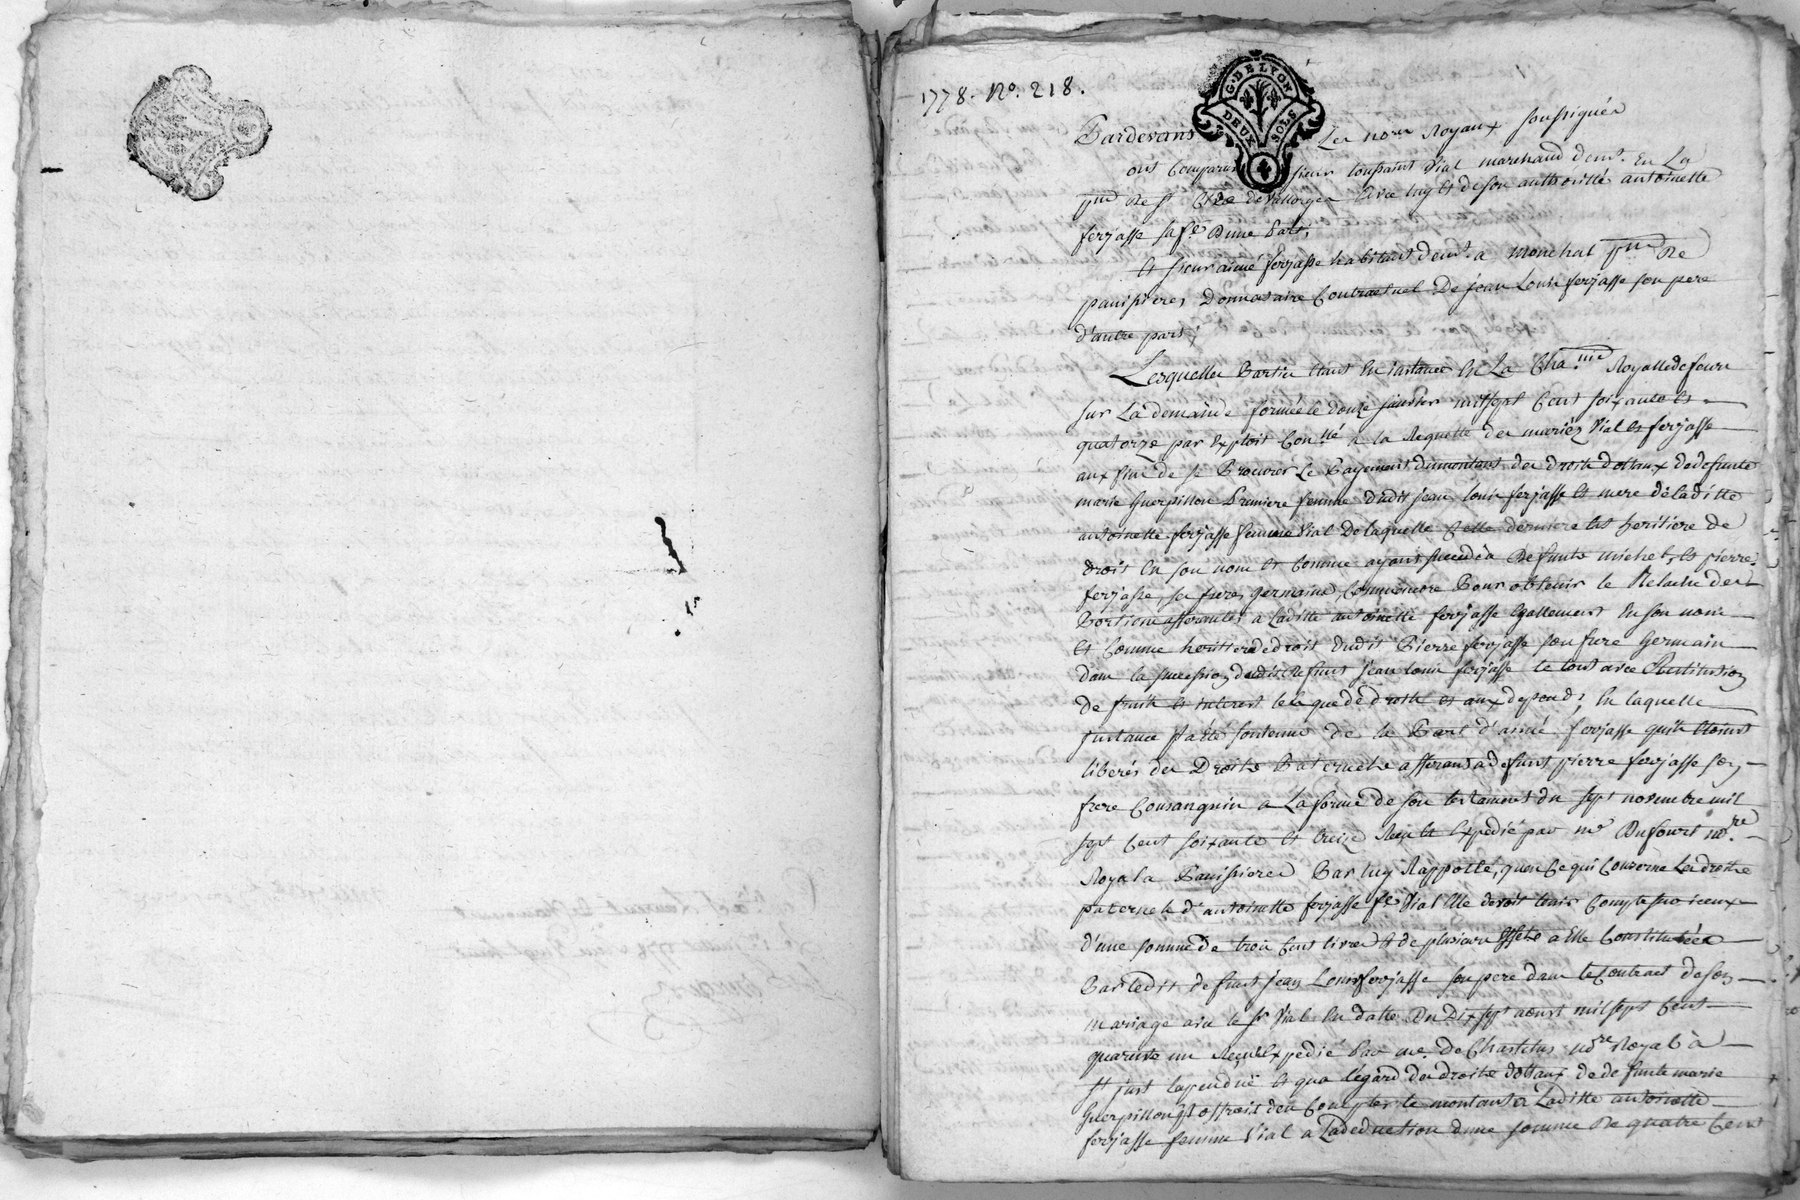 1778. No. 218.
G. DE LYON
DEUX SOLS
Pardevant Les nores Royaux soussignés
ont comparus sieur toussaint Vial marchand demt. En La
psse De st Cire de Vallorges Avec luy et de son authoritté antoinette
ferjasse sa fe. D'une Part;
Et sieur aimé ferjasse habitant demt. a Monchal psse De
panissieres Donnataire Contractuel De jean Louis ferjasse son pere
d'autre part;
Lesquelles Parties Etant En instance En La Royalle de feurs
sur La demande formée le douze janvier mil sept Cent soixante et
quatorze par Exploit a la Requette des mariez Vial et ferjasse
aux fins de se Procurer Le Payement du montant des droits dottaux de defunte
marie Guerpillon Premiere femme dudit jean Louis ferjasse et mere de laditte
antoinette ferjasse femme Vial De laquelle Cette derniere est heritiere de
droit En son nom et Comme ayant succedé a Defunts michel, et pierre
ferjasse ses freres germains, Comm'encore Pour obtenir le Relache des
Portions afferantes a laditte antoinette ferjasse Egallement En son nom
Et Comme heritiere de droit dudit Pierre ferjasse son frere Germain
dans la succession dudit Defunt jean Louis ferjasse le tout avec Restitution
de fruits et interest tels que de droits et aux depends; En laquelle
instance il a Eté soutenu de la Part d'aimé ferjasse qu'ils Etoient
liberés des Droits Paternels afferants a defunt pierre ferjasse son
frere Consanguin a La forme de son testament du sept novembre mil
sept Cent soixante et treize Reçu et Expedié par me Dufourt nore.
Royal a Panissieres Par luy Rapporté, qu'en Ce qui Concerne Les droits
paternels d'antoinette ferjasse fe Vial Elle devoit tenir Compte sur iceux
d'une somme de trois Cent livres et de plusieurs Effets a Elle Constitués
Par ledit defunt jean Louis ferjasse son pere dans le Contract de son
mariage avec le sr Vial En datte Du Dix sept aoust mil sept Cent
quarente un Reçu et Expedié Par me. de Chastelus nore Royal à
st just lapenduë et qu'a l'egard des droits dottaux de defunte marie
Guerpillon il offroit d'en Compter le montant a Laditte antoinette
ferjasse femme Vial a La deduction d'une somme De quatre Cent